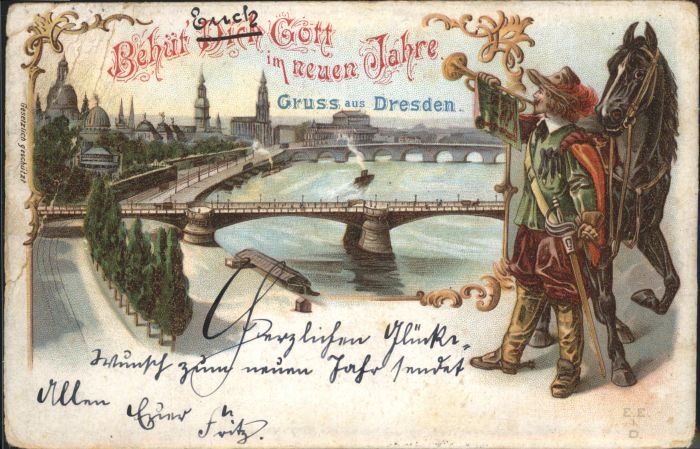 Euch
Behüt Dich Gott
im neuen Jahre
Gruss aus Dresden.
Gesetzlich geschützt
Herzlichen Glück-
Wunsch zum neuen Jahr sendet
Allen Euer
Fritz.
E.E.
i
D.